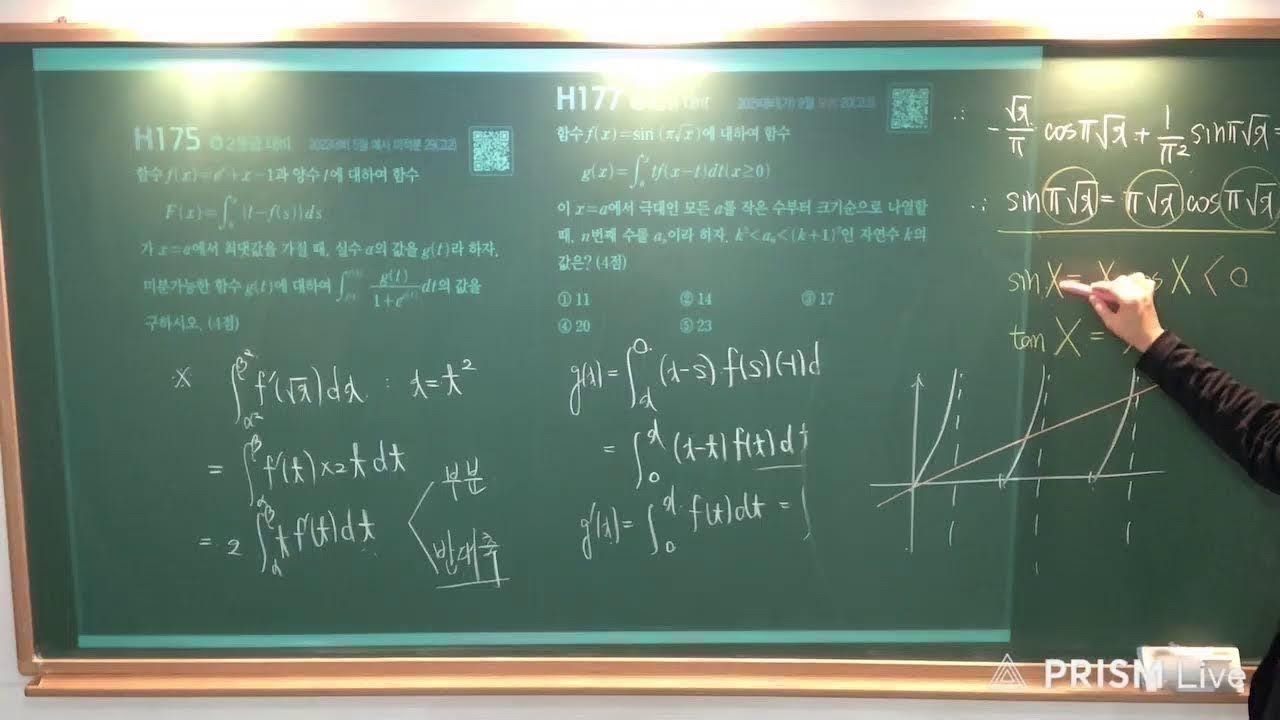 H175
함수 f(x)=eˣ+x−1과 양수 t에 대하여 함수
F(x)=∫₀ˣ {t−f(s)}ds
가 x=a에서 최댓값을 가질 때, 실수 a의 값을 g(t)라 하자.
미분가능한 함수 g(t)에 대하여 ∫ g(t)/(1+e^g(t)) dt의 값을
구하시오. (4점)
※ ∫_α²^β² f'(√x)dx : x=t²
= ∫_α^β f'(t)×2t dt
= 2∫_α^β t f'(t)dt
부분
반대쪽
H177
함수 f(x)=sin (π√x)에 대하여 함수
g(x)=∫₀ˣ tf(x−t)dt(x≥0)
이 x=a에서 극대인 모든 a를 작은 수부터 크기순으로 나열할
때, n번째 수를 aₙ이라 하자. k²<a₆<(k+1)²인 자연수 k의
값은? (4점)
① 11 ② 14 ③ 17
④ 20 ⑤ 23
g(x)=∫ₓ⁰ (x−s) f(s)(−1)d
= ∫₀ˣ (x−t)f(t)dt
g'(x)=∫₀ˣ f(t)dt =
∴ −√x/π cosπ√x + 1/π² sinπ√x =
∴ sin π√x = π√x cos π√x
sin X = X X < 0
tan X =
PRISM Live